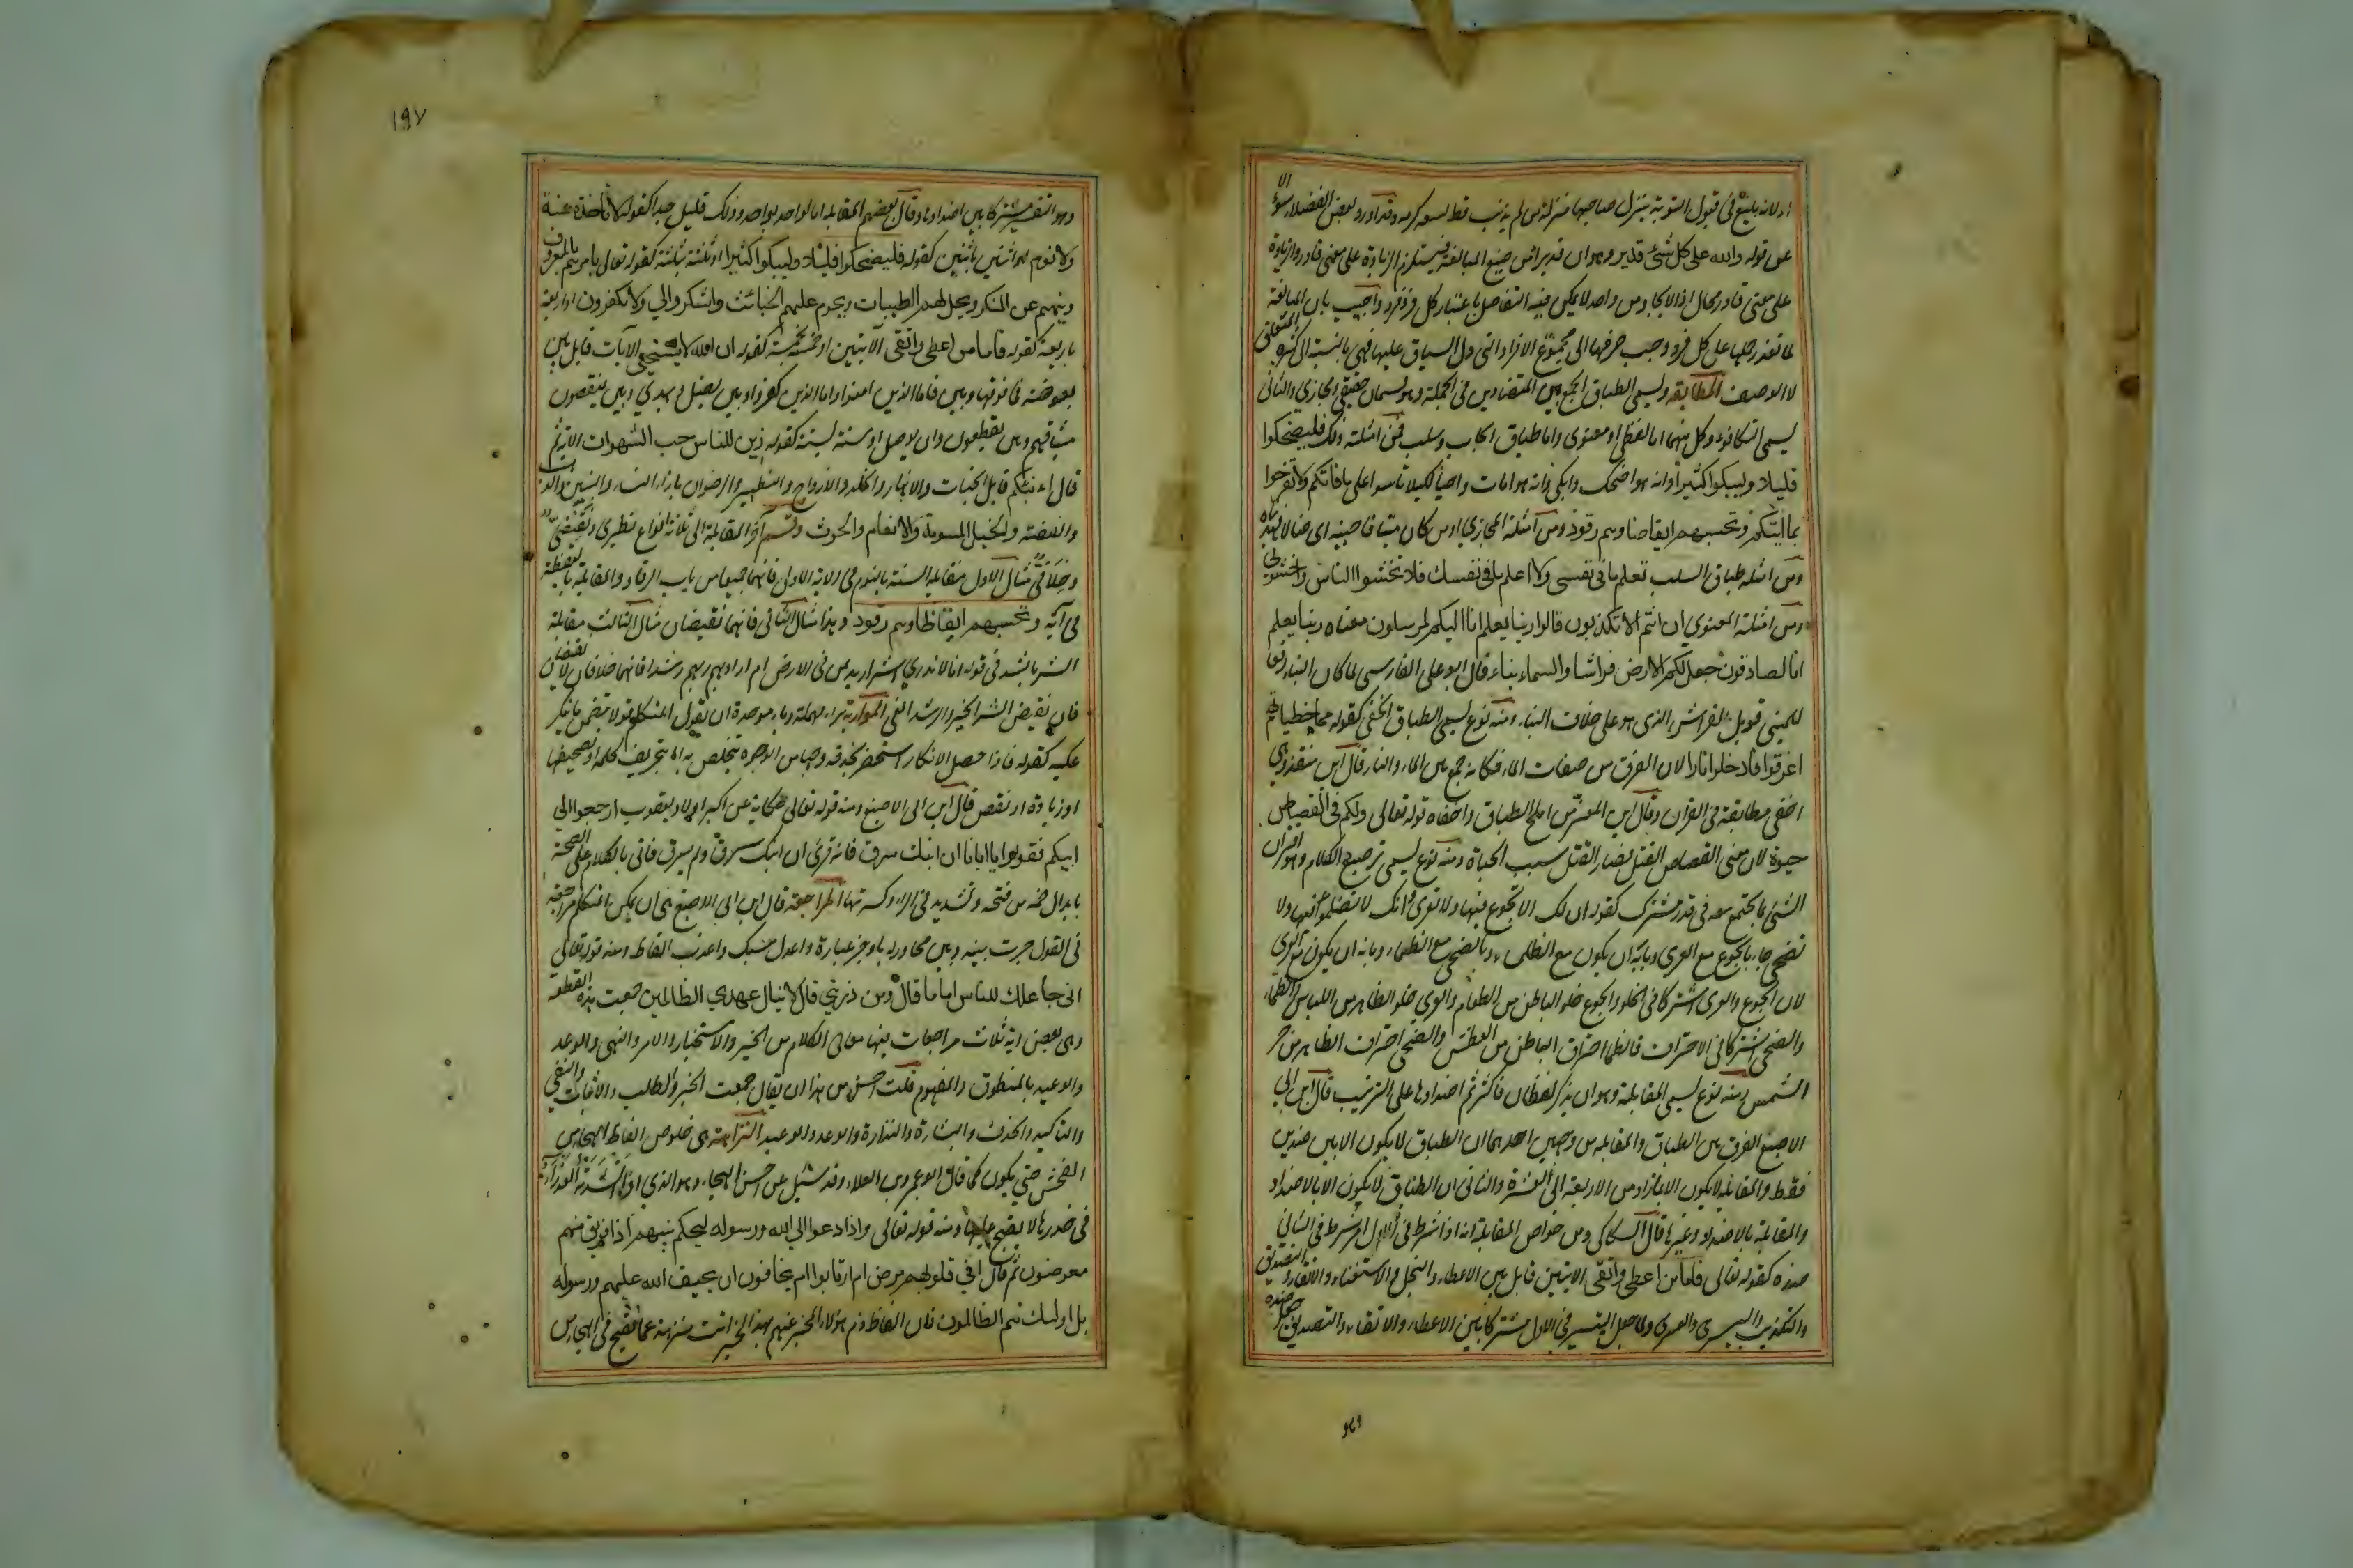 او لانه بليغ في قبول التوبة ينزل صاحبها منزلة من لم يذنب قط لسعة كرمه وقد اورد بعض الفضلاء سؤالا
على قوله والله على كل شئ قدير وهو ان قديرا من صيغ المبالغة فيستلزم الزيادة على معنى قادر والزيادة
على معنى قادر محال اذ الايجاد من واحد لا يمكن فيه التفاضل باعتبار كل فرد فرد واجيب بان المبالغة
لما تعذر حملها على كل فرد وجب صرفها الى مجموع الافراد التي دل السياق عليها فهي بالنسبة الى كثرة المتعلق
لا الوصف المطابقة وتسمى الطباق الجمع بين المتضادين في الجملة وهو قسمان حقيقي ومجازي والثاني
يسمى التكافؤ وكل منهما اما لفظي او معنوي واما طباق ايجاب وسلب فمن امثلة ذلك فليضحكوا
قليلا وليبكوا كثيرا وانه هو اضحك وابكى وانه هو امات واحيا لكيلا تأسوا على ما فاتكم ولا تفرحوا
بما آتيكم وتحسبهم ايقاضا وهم رقود ومن امثلة المجازي او من كان ميتا فاحييناه اي ضالا فهديناه
ومن امثلة طباق السلب تعلم ما في نفسي ولا اعلم ما في نفسك فلا تخشوا الناس واخشوني
ومن امثلة المعنوي ان انتم الا تكذبون قالوا ربنا يعلم انا اليكم لمرسلون معناه ربنا يعلم
انا لصادقون جعل لكم الارض فراشا والسماء بناء قال ابو علي الفارسي لما كان البناء رفعا
للمبني قوبل بالفراش الذي هو على خلاف البناء ومنه نوع يسمى الطباق الخفي كقوله مما خطياتهم
اغرقوا فادخلوا نارا لان الغرق من صفات الماء فكانه جمع بين الماء والنار قال ابن منقذ وهي
اخفى مطابقة في القرآن وقال ابن المعتز من املح الطباق واخفاه قوله تعالى ولكم في القصاص
حيوة لان معنى القصاص القتل فصار القتل سبب الحياة ومنه نوع يسمى ترصيع الكلام وهو اقتران
الشئ بما يجتمع معه في قدر مشترك كقوله ان لك الا تجوع فيها ولا تعرى وانك لا تظلمؤ فيها ولا
تضحى جاء بالجوع مع العرى وبابه ان يكون مع الظماء وبالضحى مع الظماء وبابه ان يكون مع العرى
لان الجوع والعرى اشتركا في الخلو فالجوع خلو الباطن من الطعام والعرى خلو الظاهر من اللباس والظماء
والضحى اشتركا في الاحتراق فالظما احتراق الباطن من العطش والضحى احتراق الظاهر من حر
الشمس ومنه نوع يسمى المقابلة وهو ان يذكر لفظان فاكثر ثم اضدادها على الترتيب قال ابن ابي
الاصبع الفرق بين الطباق والمقابلة من وجهين احدهما ان الطباق لا يكون الا بين ضدين
فقط والمقابلة لا يكون الا بما زاد من الاربعة الى العشرة والثاني ان الطباق لا يكون الا بالاضداد
والمقابلة بالاضداد وغيرها قال السكاكي ومن خواص المقابلة انه اذا شرط في الاول امر شرط في الثاني
ضده كقوله تعالى فاما من اعطى واتقى الآيتين قابل بين الاعطاء والبخل والاستغناء والاتقاء والتصديق
والتكذيب واليسرى والعسرى ولما جعل التيسير في الاول مشتركا بين الاعطاء والاتقاء والتصديق جعل ضده
وهو
١٩٧
وهو التعسير مشتركا بين اضدادها وقال بعضهم المقابلة اما لواحد بواحد وذلك قليل جدا كقوله لا تأخذه سنة
ولا نوم او اثنين باثنين كقوله فليضحكوا قليلا وليبكوا كثيرا او ثلثة بثلثة كقوله تعالى يأمرهم بالمعروف
وينهيهم عن المنكر ويحل لهم الطيبات ويحرم عليهم الخبائث واشكروا لي ولا تكفرون او اربعة
باربعة كقوله فاما من اعطى واتقى الآيتين او خمسة بخمسة كقوله ان الله لا يستحيي الآيات قابل بين
بعوضة فما فوقها وبين فاما الذين امنوا واما الذين كفروا وبين يضل ويهدي وبين ينقضون
ميثاقهم وبين يقطعون وان يوصل او ستة لستة كقوله زين للناس حب الشهوات الآية ثم
قال اءنبئكم قابل الجنات والانهار والخلد والازواج والتطهير والرضوان بازاء النساء والبنين والذهب
والفضة والخيل المسومة والانعام والحرث وقسم آخر المقابلة الى ثلاثة انواع نظيري ونقيضي
وخلافي مثال الاول مقابلة السنة بالنوم في الآية الاولى فانهما جميعا من باب الرقاد والمقابلة باليقظة
في آية وتحسبهم ايقاظا وهم رقود وهذا مثال الثاني فانهما نقيضان مثال الثالث مقابلة
الشر بالرشد في قوله انا لا ندري اشر اريد بمن في الارض ام اراد بهم ربهم رشدا فانهما خلافان لا نقيضان
فان نقيض الشر الخير والرشد الغي المواربة براء مهملة وباء موحدة ان يقول المتكلم قولا يتضمن ما ينكر
عليه كقوله فاذا حصل الانكار استحضر بحذقه وجها من الوجوه يتخلص به اما بتحريف كلمة او تصحيفها
او زيادة او نقص قال ابن ابي الاصبع ومنه قوله تعالى حكاية عن اكبر اولاد يعقوب ارجعوا الى
ابيكم فقولوا يا ابانا ان ابنك سرق فانه قرئ ان ابنك سرق ولم يسرق فاتى بالكلام على الصحة
بابدال ضمة من فتحة وتشديد في الراء وكسرتها المراجعة قال ابن ابي الاصبع هي ان يحكي المتكلم مراجعة
في القول جرت بينه وبين محاور له باوجز عبارة واعدل سبك واعذب الفاظ ومنه قوله تعالى
اني جاعلك للناس اماما قال ومن ذريتي قال لا ينال عهدي الظالمين جمعت هذه القطعة
وهي بعض اية ثلاث مراجعات فيها معاني الكلام من الخبر والاستخبار والامر والنهي والوعد
والوعيد بالمنطوق والمفهوم قلت احسن من هذا ان يقال جمعت الخبر والطلب والاثبات والنفي
والتاكيد والحذف والبشارة والنذارة والوعد والوعيد النزاهة هي خلوص الفاظ الهجاء من
الفحش حتى يكون كما قال ابو عمرو بن العلاء وقد سئل عن احسن الهجاء وهو الذي اذا انشدته العذراء
في خدرها لا يقبح عليها ومنه قوله تعالى واذا دعوا الى الله ورسوله ليحكم بينهم اذا فريق منهم
معرضون ثم قال افي قلوبهم مرض ام ارتابوا ام يخافون ان يحيف الله عليهم ورسوله
بل اولئك هم الظالمون فان الفاظ ذم هؤلاء المخبر عنهم بهذا الخبر اتت منزهة عما يقبح في الهجاء من